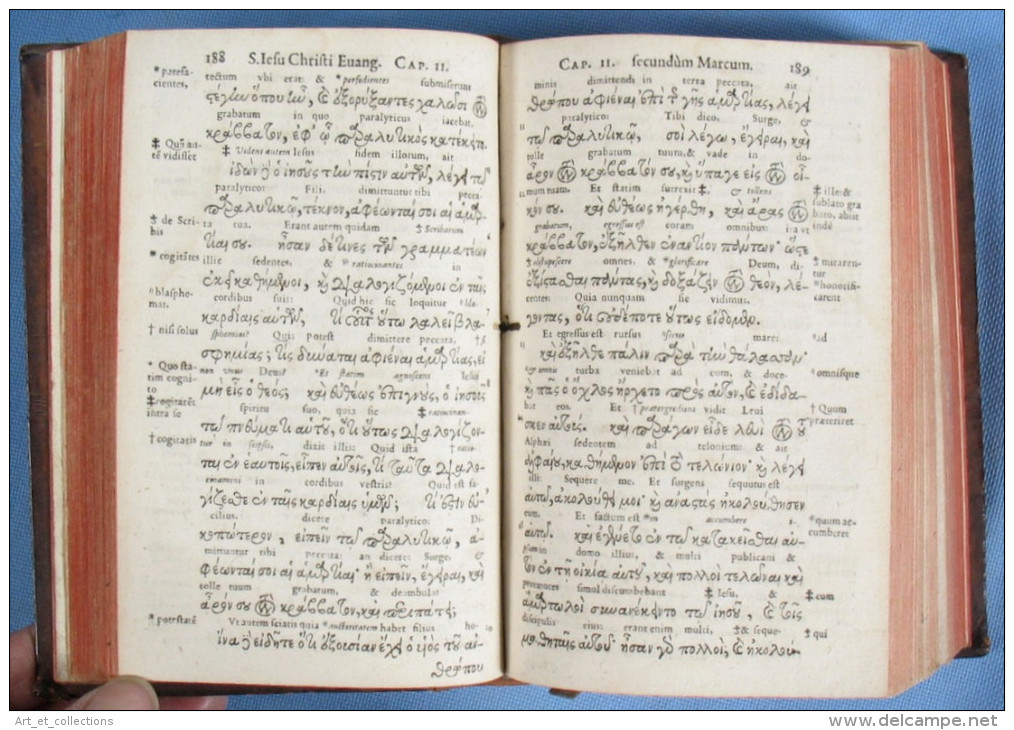 188 S. Iesu Christi Euang. CAP. II.
tectum vbi erat: & *perfodientes submiserunt
στέγην ὅπου ἦν, καὶ ἐξορύξαντες χαλῶσι τὸν
grabatum in quo paralyticus iacebat.
κράββατον, ἐφ' ᾧ ὁ παραλυτικὸς κατέκειτο.
‡ Videns autem Iesus fidem illorum, ait
ἰδὼν δὲ ὁ ἰησοῦς τὴν πίστιν αὐτῶν, λέγει τῷ
paralytico: Fili, dimittuntur tibi pecca-
παραλυτικῷ, τέκνον, ἀφέωνταί σοι αἱ ἁμαρ-
ta tua. Erant autem quidam ‡ Scribarum
τίαι σου. ἦσαν δέ τινες τῶν γραμματέων
illic sedentes, & *ratiocinantes in
ἐκεῖ καθήμενοι, καὶ διαλογιζόμενοι ἐν ταῖς
cordibus suis: Quid hic sic loquitur *bla-
καρδίαις αὐτῶν, τί οὗτος οὕτω λαλεῖ βλα-
sphemias? Quis potest dimittere peccata, †si
σφημίας; τίς δύναται ἀφιέναι ἁμαρτίας, εἰ
non vnus Deus? *Et statim agnoscens Iesus
μὴ εἷς ὁ θεός; καὶ εὐθέως ἐπιγνοὺς, ὁ ἰησοῦς
spiritu suo, quia sic ‡ ratiocinan-
τῷ πνεύματι αὐτοῦ, ὅτι οὕτως διαλογίζον-
tur in seipsis, dixit illis: Quid ista † ratio-
ται ἐν ἑαυτοῖς, εἶπεν αὐτοῖς, τί ταῦτα διαλο-
cinamini in cordibus vestris? Quid est fa-
γίζεσθε ἐν ταῖς καρδίαις ὑμῶν; τί ἐστιν εὐ-
cilius, dicere paralytico: Di-
κοπώτερον, εἰπεῖν τῷ παραλυτικῷ, ἀ-
mittuntur tibi peccata: an dicere: Surge, &
φέωνταί σοι αἱ ἁμαρτίαι· ἢ εἰπεῖν, ἔγειραι, καὶ
tolle tuum grabatum, & deambula?
ἆρόν σου τὸν κράββατον, καὶ περιπάτει;
Vt autem sciatis quia *auctoritatem habet filius ho-
ἵνα δὲ εἰδῆτε ὅτι ἐξουσίαν ἔχει ὁ υἱὸς τοῦ ἀν-
θρώπου
*patefa-
cientes,
‡ Quū au-
tē vidisset
‡ de Scri-
bis
*cogitātes
*blasphe-
mat.
† nisi solus
* Quo sta-
tim cogni-
to
‡cogitarēt
intra se
†cogitatis
*potestatē
CAP. II. secundùm Marcum. 189
minis dimittendi in terra peccata, ait
θρώπου ἀφιέναι ἐπὶ τῆς γῆς ἁμαρτίας, λέγει
paralytico: Tibi dico, Surge, &
τῷ παραλυτικῷ, σοὶ λέγω, ἔγειραι, καὶ
tolle grabatum tuum, & vade in do-
ἆρον τὸν κράββατόν σου, καὶ ὕπαγε εἰς τὸν οἶ-
mum tuam. Et statim surrexit ‡, & tollens
κόν σου. καὶ εὐθέως ἠγέρθη, καὶ ἄρας τὸν
grabatum, egressus est coram omnibus: ita vt
κράββατον, ἐξῆλθεν ἐναντίον πάντων· ὥστε
‡obstupescere omnes, & *glorificare Deum, di-
ἐξίστασθαι πάντας, καὶ δοξάζειν τὸν θεὸν, λέ-
centes Quia nunquam sic vidimus.
γοντας, ὅτι οὐδέποτε οὕτως εἴδομεν.
Et egressus est rursus *secus mare: *ad
καὶ ἐξῆλθε πάλιν παρὰ τὴν θάλασσαν·
turba veniebat ad eum, & doce-
καὶ πᾶς ὁ ὄχλος ἤρχετο πρὸς αὐτὸν, καὶ ἐδίδα-
bat eos. Et † praetergrediens vidit Leui
σκεν αὐτούς. καὶ παράγων εἶδε λευὶ τὸν τοῦ
Alphæi sedentem ad telonium: & ait
ἀλφαίου, καθήμενον ἐπὶ τὸ τελώνιον· καὶ λέγει
illi: Sequere me. Et surgens sequutus est
αὐτῷ, ἀκολούθει μοι· καὶ ἀναστὰς ἠκολούθησεν
eum. Et factum est *in accumbere i-
αὐτῷ. καὶ ἐγένετο ἐν τῷ κατακεῖσθαι αὐ-
psum in domo illius, & multi publicani &
τὸν ἐν τῇ οἰκίᾳ αὐτοῦ, καὶ πολλοὶ τελῶναι καὶ
peccatores simul discumbebant ‡ Iesu, &
ἁμαρτωλοὶ συνανέκειντο τῷ ἰησοῦ, καὶ τοῖς
discipulis eius: erant enim multi, ‡ & seque-
μαθηταῖς αὐτοῦ· ἦσαν γὰρ πολλοὶ, καὶ ἠκολού-
‡ ille: &
sublato gra
bato, abiit
inde
‡ miraren-
tur
*honorifi-
carent
*ad
*omnisque
† Quum
præteriret
*quum ac-
cumberet
‡ cum
‡ qui
Art_et_collections
www.delcampe.net